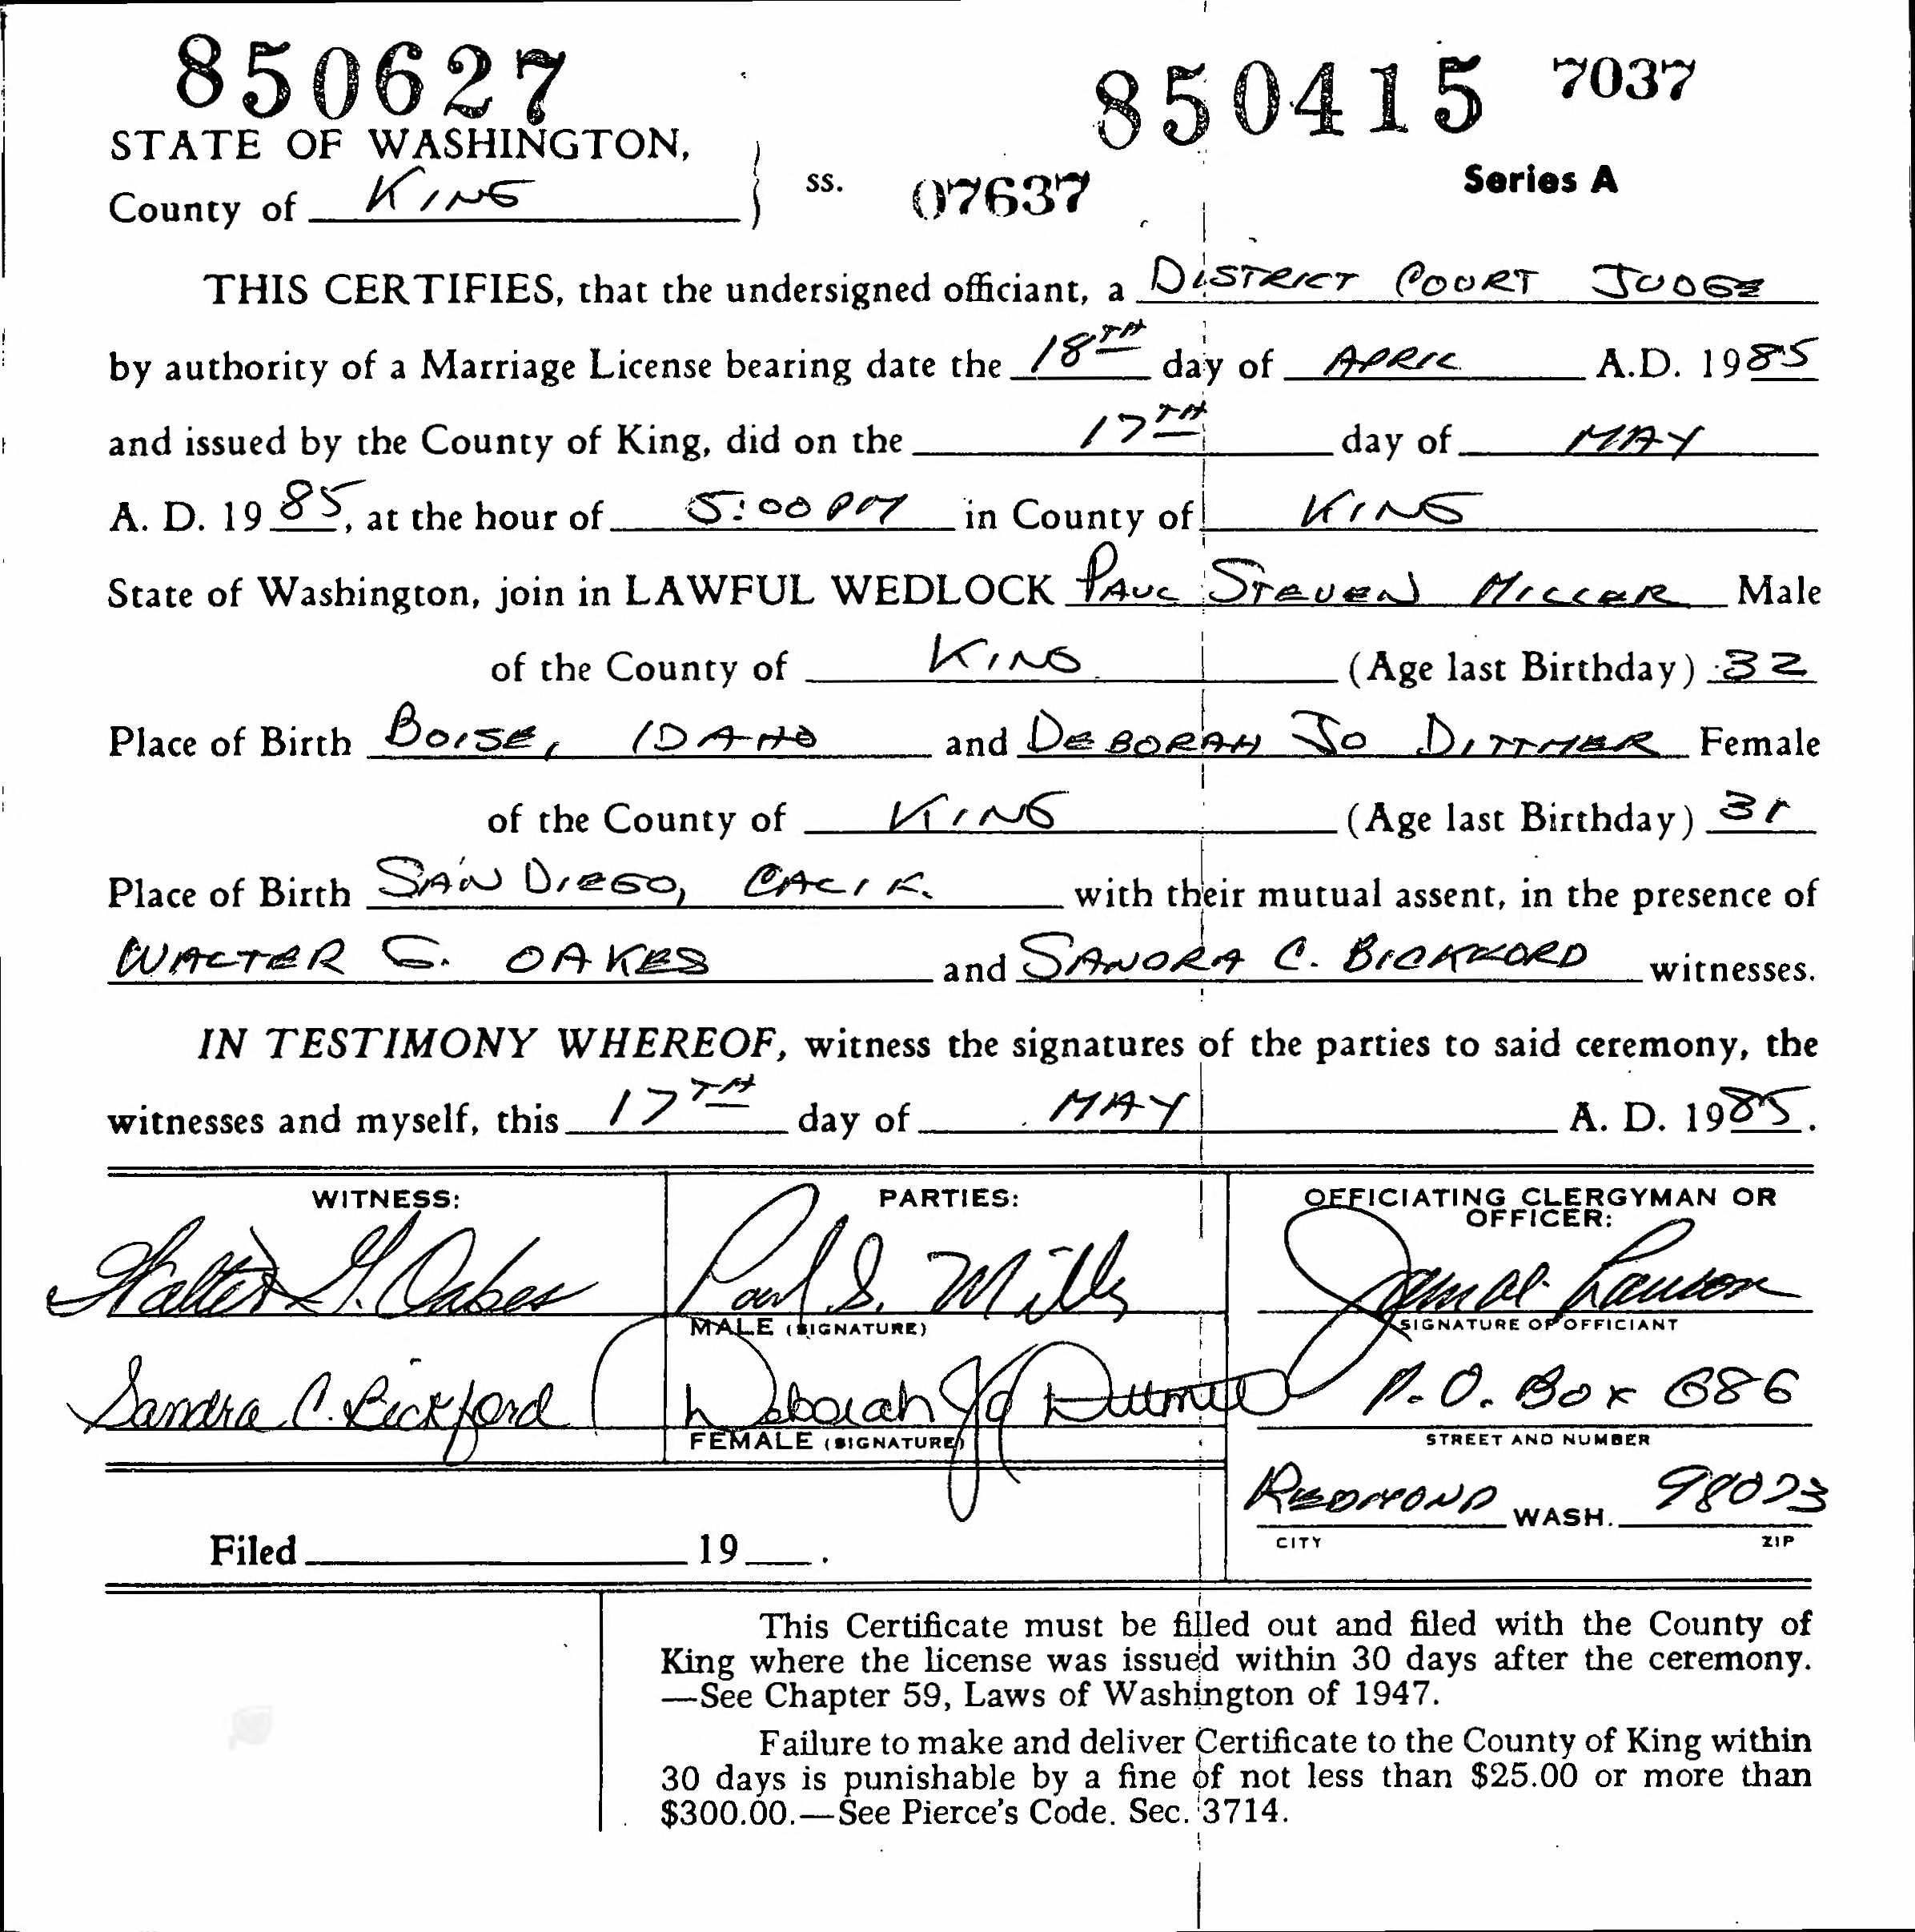 850627
850415 7037
STATE OF WASHINGTON,
County of KING ss. 07637 Series A
THIS CERTIFIES, that the undersigned officiant, a DISTRICT COURT JUDGE
by authority of a Marriage License bearing date the 18TH day of APRIL A.D. 1985
and issued by the County of King, did on the 17TH day of MAY
A. D. 1985, at the hour of 5:00 PM in County of KING
State of Washington, join in LAWFUL WEDLOCK PAUL STEVEN MILLER Male
of the County of KING (Age last Birthday) 32
Place of Birth BOISE, IDAHO and DEBORAH JO DITTMER Female
of the County of KING (Age last Birthday) 31
Place of Birth SAN DIEGO, CALIF. with their mutual assent, in the presence of
WALTER G. OAKES and SANDRA C. BICKFORD witnesses.
IN TESTIMONY WHEREOF, witness the signatures of the parties to said ceremony, the
witnesses and myself, this 17TH day of MAY A. D. 1985.
WITNESS: PARTIES: OFFICIATING CLERGYMAN OR
OFFICER:
Walter G. Oakes Paul S. Miller
MALE (SIGNATURE) SIGNATURE OF OFFICIANT
Sandra C. Bickford Deborah Jo Dittmer P.O. Box 686
FEMALE (SIGNATURE) STREET AND NUMBER
REDMOND WASH. 98073
CITY ZIP
Filed 19 .
This Certificate must be filled out and filed with the County of
King where the license was issued within 30 days after the ceremony.
—See Chapter 59, Laws of Washington of 1947.
Failure to make and deliver Certificate to the County of King within
30 days is punishable by a fine of not less than $25.00 or more than
$300.00.—See Pierce's Code. Sec. 3714.